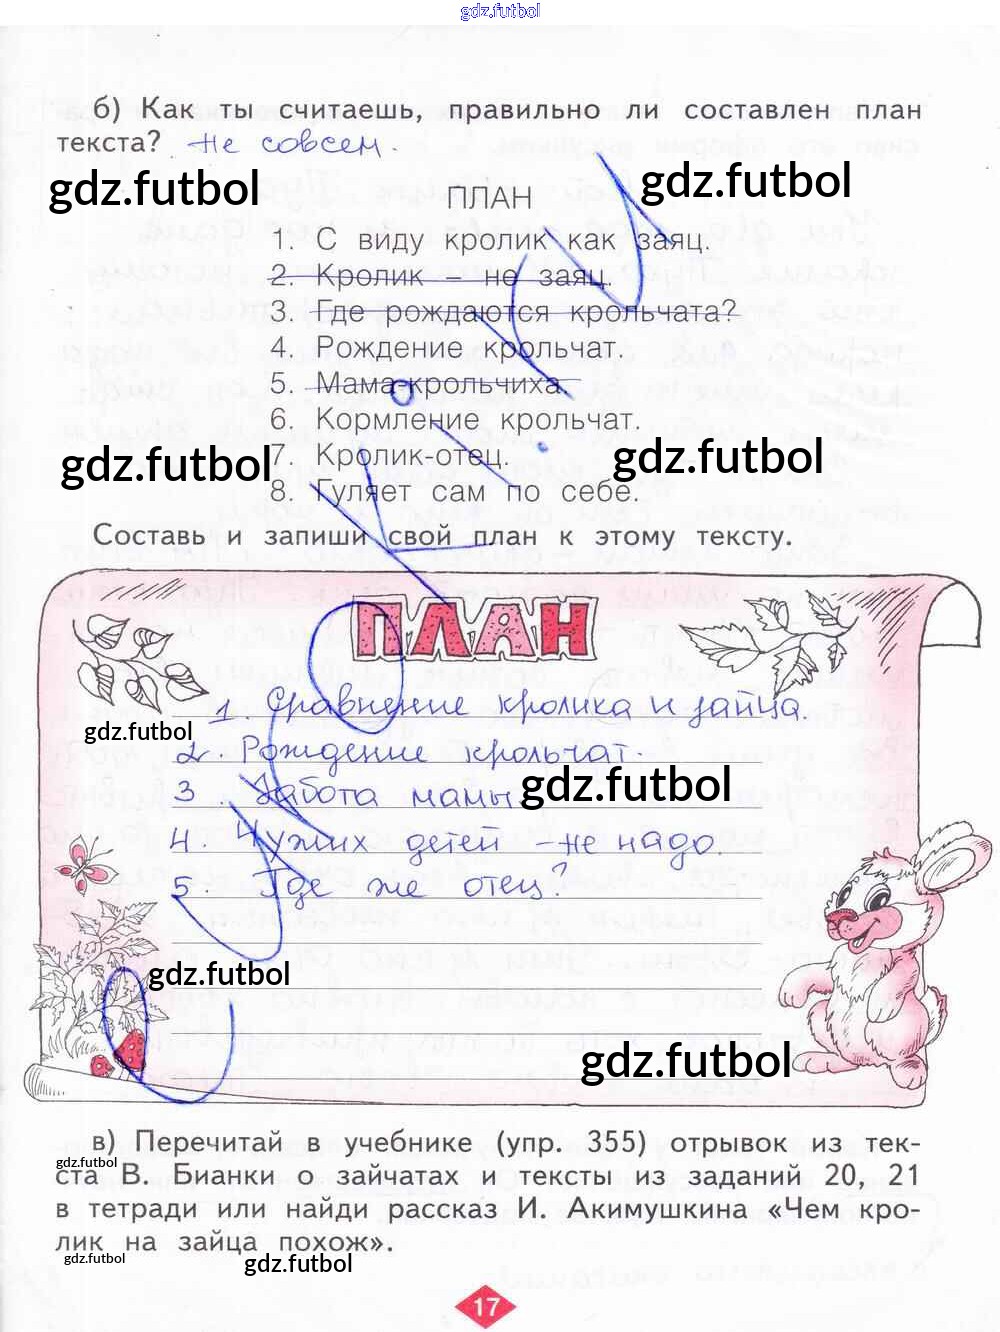 gdz.futbol
б) Как ты считаешь, правильно ли составлен план
текста? Не совсем.
gdz.futbol
gdz.futbol
ПЛАН
1. С виду кролик как заяц.
2. Кролик — не заяц.
3. Где рождаются крольчата?
4. Рождение крольчат.
5. Мама-крольчиха.
6. Кормление крольчат.
7. Кролик-отец.
gdz.futbol
gdz.futbol
8. Гуляет сам по себе.
Составь и запиши свой план к этому тексту.
ПЛАН
1 Сравнение кролика и зайца
gdz.futbol
2. Рождение крольчат.
3. Забота мамы
gdz.futbol
4. Чужих детей - не надо
5. Где же отец?
gdz.futbol
gdz.futbol
в) Перечитай в учебнике (упр. 355) отрывок из тек-
gdz.futbol
ста В. Бианки о зайчатах и тексты из заданий 20, 21
в тетради или найди рассказ И. Акимушкина «Чем кро-
лик на зайца похож».
gdz.futbol
gdz.futbol
17